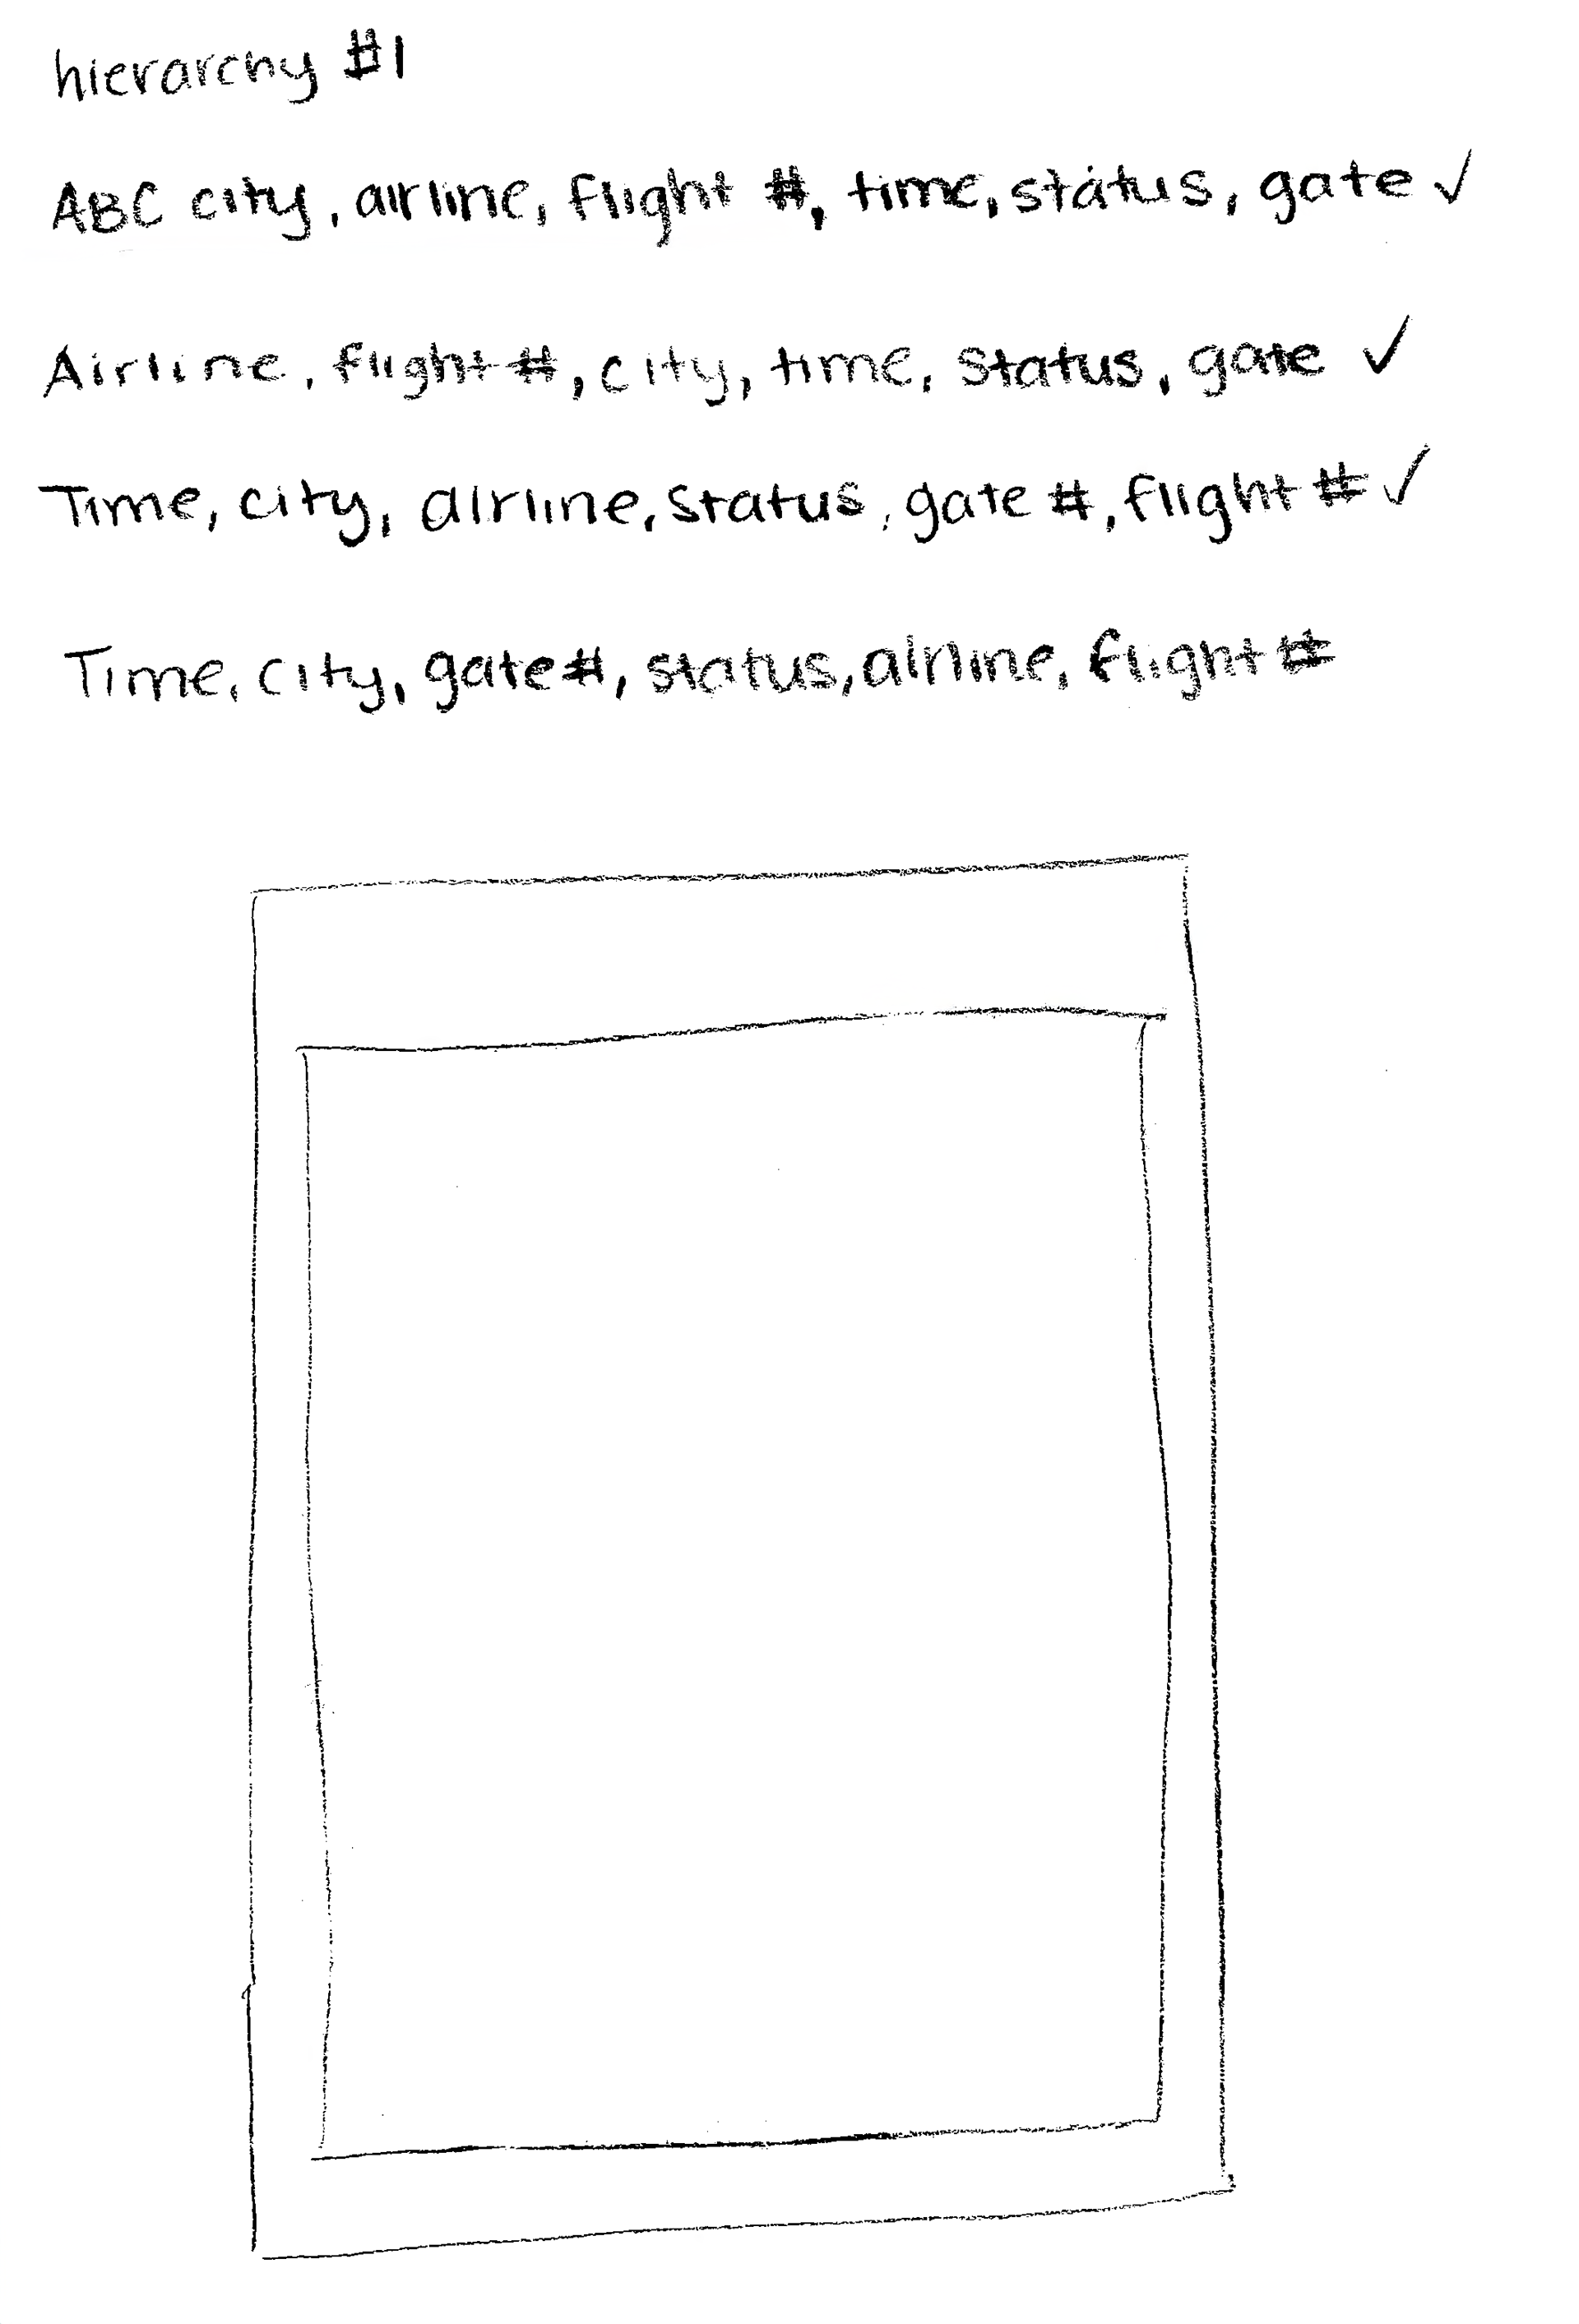 hierarchy #1
ABC city, airline, flight #, time, status, gate ✓
Airline, flight #, city, time, status, gate ✓
Time, city, airline, status, gate #, flight # ✓
Time, city, gate #, status, airline, flight #